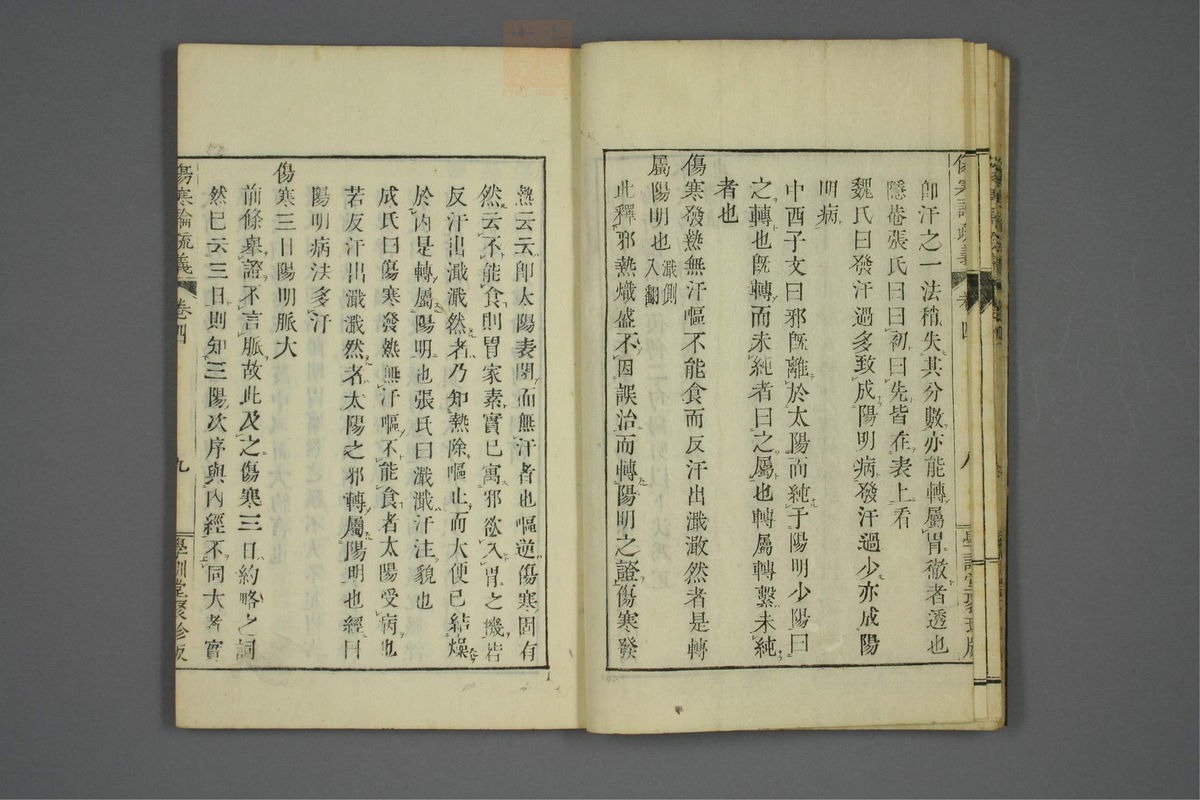 傷寒論疏義 卷四 八 學訓堂聚珍版
即汗之一法稍失其分數亦能轉屬胃徹者透也
隱菴張氏曰曰初曰先皆在表上看
魏氏曰發汗過多致成陽明病發汗過少亦成陽
明病
中西子文曰邪既離於太陽而純于陽明少陽曰
之轉也既轉而未純者曰之屬也轉屬轉繫未純
者也
傷寒發熱無汗嘔不能食而反汗出濈濈然者是轉
屬陽明也濈側入翻
此釋邪熱熾盛不因誤治而轉陽明之證傷寒發
熱云云即太陽表閉而無汗者也嘔逆傷寒固有
然云不能食則胃家素實已寓邪欲入胃之機若
反汗出濈濈然者乃知熱除嘔止而大便已結燥
於內是轉屬陽明也張氏曰濈濈汗注貌也
成氏曰傷寒發熱無汗嘔不能食者太陽受病也
若反汗出濈濈然者太陽之邪轉屬陽明也經曰
陽明病法多汗
傷寒三日陽明脈大
前條舉證不言脈故此及之傷寒三日約略之詞
然已云三日則知三陽次序與內經不同大者實
傷寒論疏義 卷四 九 學訓堂聚珍版